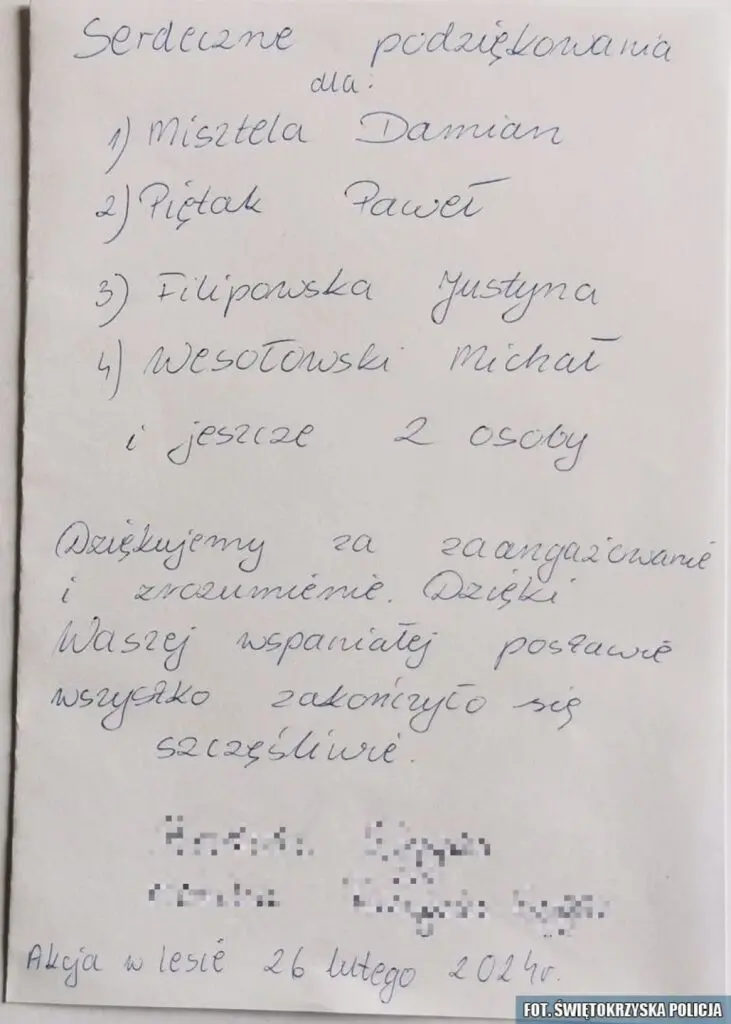 Serdeczne podziękowania
dla:
1) Misztela Damian
2) Piętak Paweł
3) Filipowska Justyna
4) Wesołowski Michał
i jeszcze 2 osoby
Dziękujemy za zaangażowanie
i zrozumienie. Dzięki
Waszej wspaniałej postawie
wszystko zakończyło się
szczęśliwie.
Akcja w lesie 26 lutego 2024r.
FOT. ŚWIĘTOKRZYSKA POLICJA